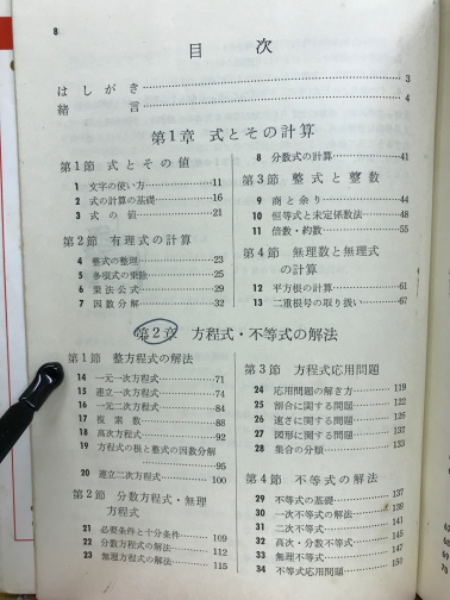 8
目 次
はしがき……3
緒言……4
第1章 式とその計算
第1節 式とその値
1 文字の使い方……11
2 式の計算の基礎……16
3 式の値……21
第2節 有理式の計算
4 整式の整理……23
5 多項式の乗除……25
6 乗法公式……29
7 因数分解……32
8 分数式の計算……41
第3節 整式と整数
9 商と余り……44
10 恒等式と未定係数法……48
11 倍数・約数……55
第4節 無理数と無理式
の計算
12 平方根の計算……61
13 二重根号の取り扱い……67
第2章 方程式・不等式の解法
第1節 整方程式の解法
14 一元一次方程式……71
15 連立一次方程式……74
16 一元二次方程式……84
17 複素数……88
18 高次方程式……92
19 方程式の根と整式の因数分解
……95
20 連立二次方程式……100
第2節 分数方程式・無理
方程式
21 必要条件と十分条件……109
22 分数方程式の解法……112
23 無理方程式の解法……115
第3節 方程式応用問題
24 応用問題の解き方……119
25 割合に関する問題……122
26 速さに関する問題……125
27 図形に関する問題……132
28 集合の分類……133
第4節 不等式の解法
29 不等式の基礎……137
30 一次不等式の解法……139
31 二次不等式……141
32 高次・分数不等式……145
33 無理不等式……147
34 不等式応用問題……150